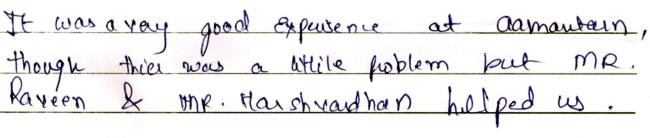 It was a very good experience at aamantarn,
though thier was a little problem but MR.
Raveen & MR. Harshvardhan helped us.